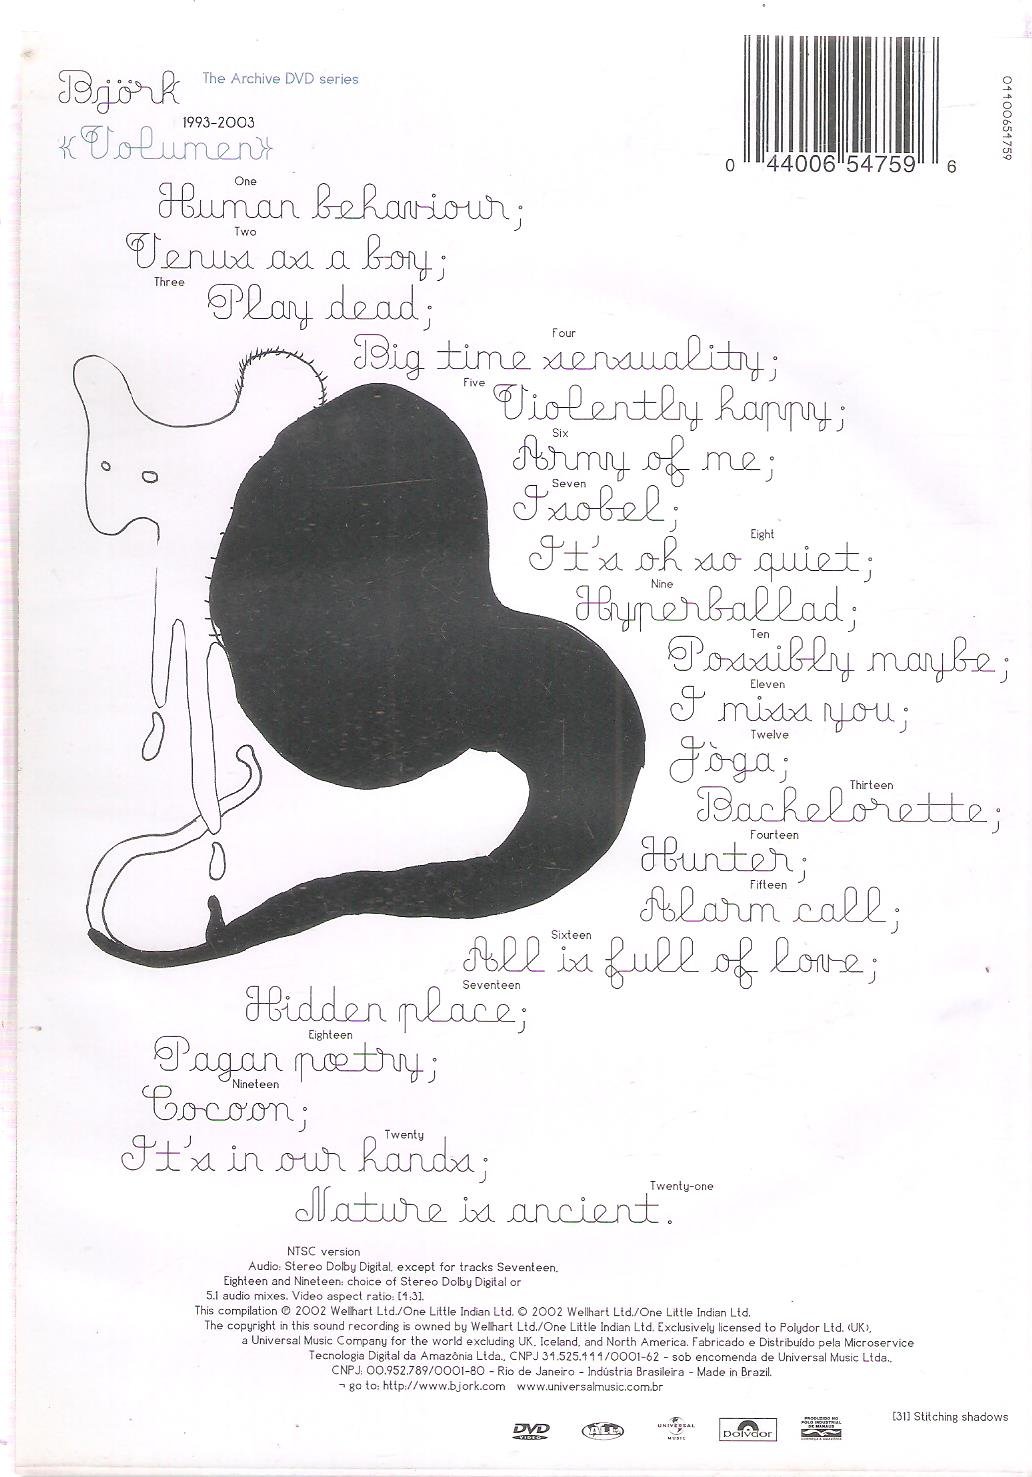 Björk The Archive DVD series
1993-2003
«Volumen»
One
Human behaviour;
Two
Venus as a boy;
Three
Play dead;
Four
Big time sensuality;
Five
Violently happy;
Six
Army of me;
Seven
Isobel;
Eight
It's oh so quiet;
Nine
Hyperballad;
Ten
Possibly maybe;
Eleven
I miss you;
Twelve
Jòga;
Thirteen
Bachelorette;
Fourteen
Hunter;
Fifteen
Alarm call;
Sixteen
All is full of love;
Seventeen
Hidden place;
Eighteen
Pagan pœtry;
Nineteen
Cocoon;
Twenty
It's in our hands;
Twenty-one
Nature is ancient.
0 44006 54759 6
04400654759
NTSC version
Audio: Stereo Dolby Digital, except for tracks Seventeen,
Eighteen and Nineteen: choice of Stereo Dolby Digital or
5.1 audio mixes. Video aspect ratio: [4:3].
This compilation ℗ 2002 Wellhart Ltd./One Little Indian Ltd. © 2002 Wellhart Ltd./One Little Indian Ltd.
The copyright in this sound recording is owned by Wellhart Ltd./One Little Indian Ltd. Exclusively licensed to Polydor Ltd. (UK),
a Universal Music Company for the world excluding UK, Iceland, and North America. Fabricado e Distribuído pela Microservice
Tecnologia Digital da Amazônia Ltda., CNPJ 34.525.444/0001-62 - sob encomenda de Universal Music Ltda.,
CNPJ: 00.952.789/0001-80 - Rio de Janeiro - Indústria Brasileira - Made in Brazil.
¬ go to: http://www.bjork.com www.universalmusic.com.br
[31] Stitching shadows
DVD
VIDEO
ALL
UNIVERSAL
MUSIC
Polydor
PRODUZIDO NO
PÓLO INDUSTRIAL
DE MANAUS